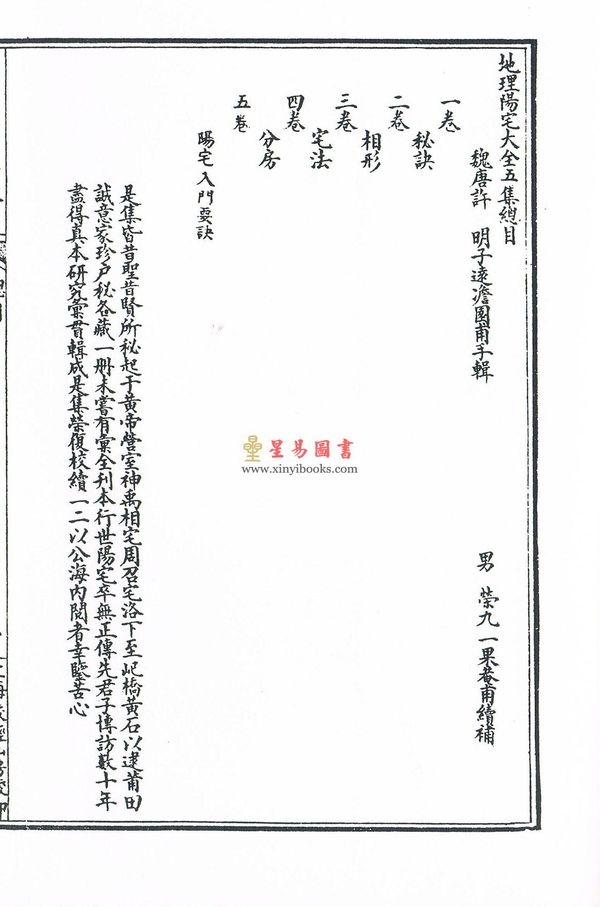 地理陽宅大全五集總目
魏唐許 明子遠澹園甫手輯
男 榮九一果菴甫續補
一卷
秘訣
二卷
相形
三卷
宅法
四卷
分房
五卷
陽宅入門要訣
是集皆昔聖昔賢所秘起于黃帝營室神禹相宅周召宅洛下至圯橋黃石以逮莆田
誠意家珍户秘各藏一册未嘗有彙全刊本行世陽宅卒無正傳先君子博訪數十年
盡得真本研究彙貫輯成是集榮復校續一二以公海內閱者幸鑒苦心
星易圖書
www.xinyibooks.com